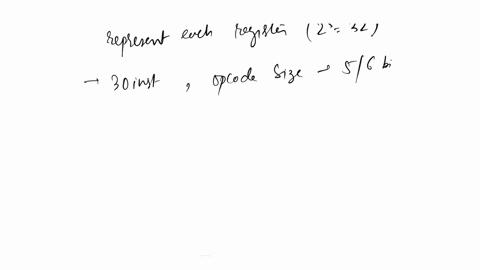 represent each register (2⁵ = 32)
→ 30 inst , opcode size → 5/6 bi